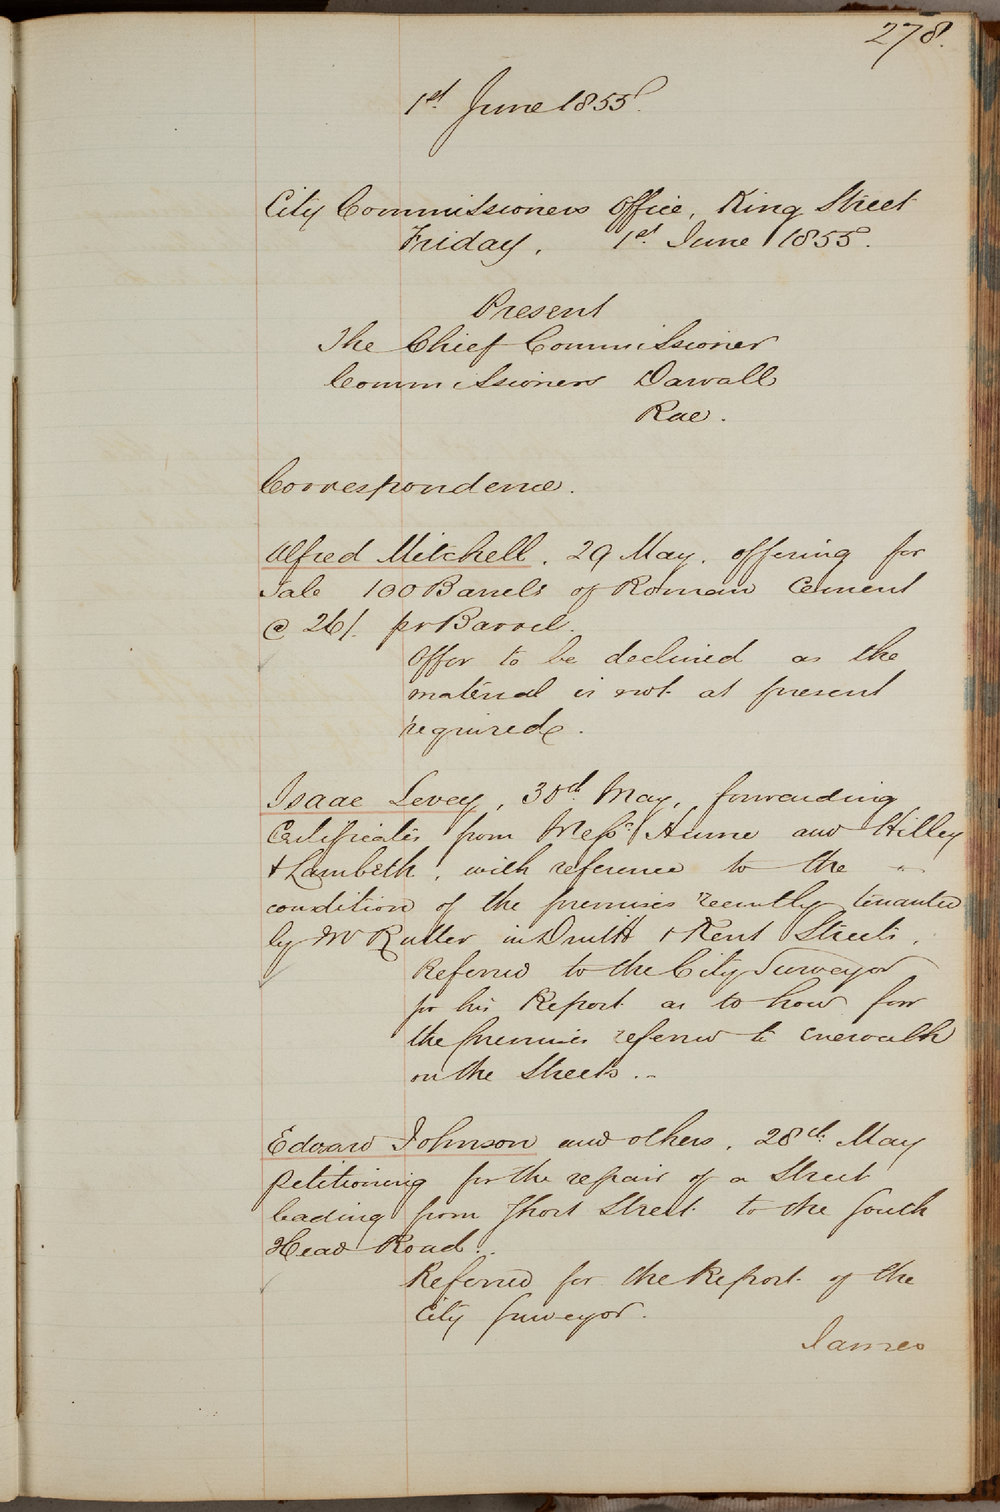 278.
1st June 1855.
City Commissioners Office, King Street
Friday, 1st June 1855.
Present
The Chief Commissioner
Commissioners Darvall
Rae.
Correspondence.
Alfred Mitchell, 29 May, offering for
Sale 100 Barrels of Roman Cement
@ 26/. pr Barrel.
Offer to be declined as the
material is not at present
required.
Isaac Levey, 30th May, forwarding
Certificates from Messrs Hume and Hilley
& Lambeth, with reference to the
condition of the premises recently tenanted
by Mr Rutter in Druitt & Kent Streets,
Referred to the City Surveyor
for his Report as to how far
the premises referred to encroach
on the Streets.-
Edward Johnson and others, 28th May
petitioning for the repair of a Street
leading from Short Street to the South
Head Road.
Referred for the Report of the
City Surveyor.
James